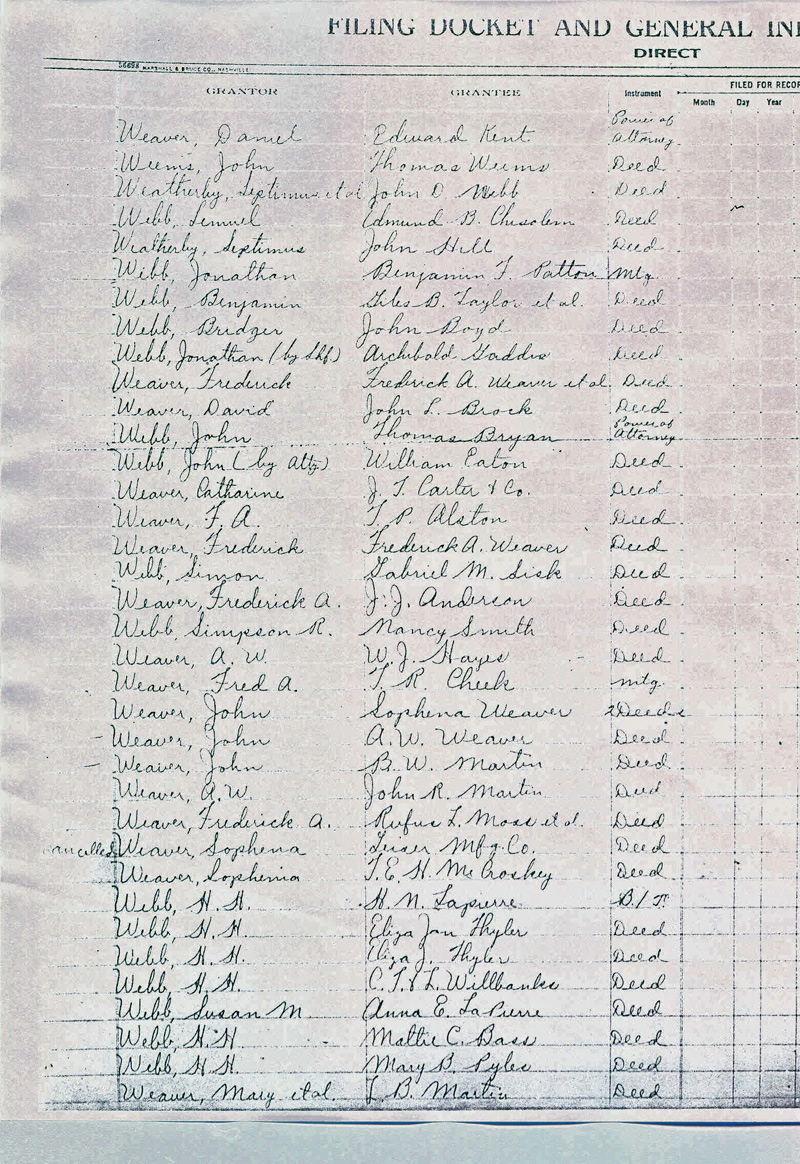 FILING DOCKET AND GENERAL IN
DIRECT
56698 MARSHALL & BRUCE CO., NASHVILLE
GRANTOR GRANTEE Instrument FILED FOR RECOR
Month Day Year
Weaver, Daniel Edward Kent Power of Attorney
Weems, John Thomas Weems Deed
Weatherby, Septimus et al John D. Webb Deed
Webb, Lemuel Edmund B. Chisolem Deed
Weatherby, Septimus John Hill Deed
Webb, Jonathan Benjamin F. Patton Mtg.
Webb, Benjamin Giles B. Taylor et al. Deed
Webb, Bridger John Boyd Deed
Webb, Jonathan (by Shf.) Archibald Gaddis Deed
Weaver, Frederick Frederick A. Weaver et al. Deed
Weaver, David John L. Brock Deed
Webb, John Thomas Bryan Power of Attorney
Webb, John (by Atty) William Eaton Deed
Weaver, Catharine J. T. Carter & Co. Deed
Weaver, F. A. T. P. Alston Deed
Weaver, Frederick Frederick A. Weaver Deed
Webb, Simon Gabriel M. Sisk Deed
Weaver, Frederick A. J. J. Anderson Deed
Webb, Simpson R. Nancy Smith Deed
Weaver, A. W. W. J. Hayes Deed
Weaver, Fred A. T. R. Cheek Mtg.
Weaver, John Sophena Weaver 2 Deeds
Weaver, John A. W. Weaver Deed
Weaver, John B. W. Martin Deed
Weaver, A. W. John R. Martin Deed
Weaver, Frederick A. Rufus L. Moss et al. Deed
cancelled Weaver, Sophena Mfg. Co. Deed
Weaver, Sophenia T. E. H. McCroskey Deed
Webb, H. H. H. N. Lapierre B/T
Webb, H. H. Eliza Jan Thyler Deed
Webb, H. H. Eliza J. Thyler Deed
Webb, H. H. C. T. & L. Willbanks Deed
Webb, Susan M. Anna E. LaPierre Deed
Webb, H. H. Mattie C. Bass Deed
Webb, H. H. Mary B. Pyles Deed
Weaver, Mary et al. B. Martin Deed